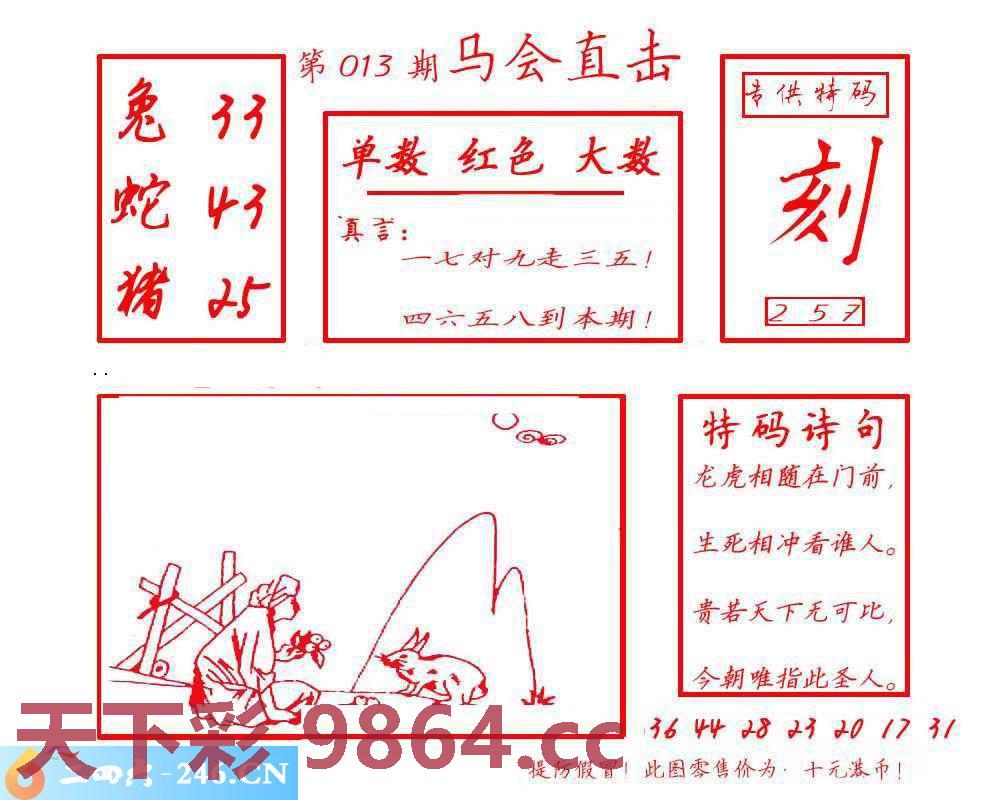 第 013 期 马会直击
兔 33
蛇 43
猪 25
单数 红色 大数
真言：
一七对九走三五！
四六五八到本期！
专供特码
刻
2 5 7
特码诗句
龙虎相随在门前，
生死相冲看谁人。
贵若天下无可比，
今朝唯指此圣人。
36 44 28 23 20 17 31
天下彩 9864.cc
-246.CN
提防假冒！此图零售价为·十元港币！